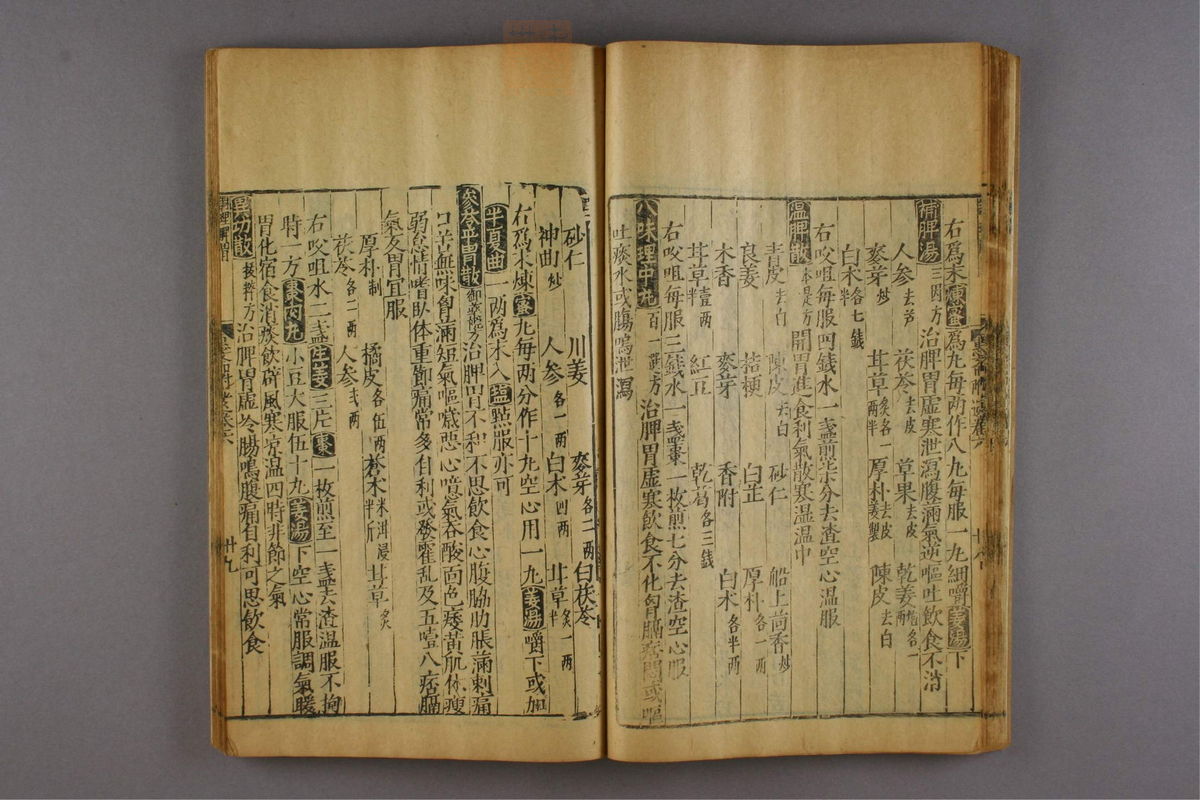 右爲末煉蜜爲丸每两作八丸每服一丸細嚼姜湯下
補脾湯三因方治脾胃虛寒泄瀉腹滿氣逆嘔吐飲食不消
人参去芦 茯苓去皮 草果去皮 乾姜炮各一两
麥芽炒 甘草炙各一两半 厚朴去皮姜製 陳皮去白
白朮各七錢半
右㕮咀每服四錢水一盞煎柒分去渣空心温服
温脾散本事方開胃進食利氣散寒湿温中
青皮去白 陳皮去白 砂仁 船上茴香炒
良姜 桔梗 白芷 厚朴各一两
木香 麥芽 香附 白术各半两
甘草壹两 紅豆 乾葛各三錢
右㕮咀每服三錢水一盞棗一枚煎七分去渣空心服
八味理中丸百一選方治脾胃虛寒飲食不化胷膈痞悶或嘔
吐痰水或腸鳴泄瀉
砂仁 川姜 麥芽各二两 白茯苓
神曲炒 人参各一两 白术四两 甘草炙一两半
右爲末煉蜜丸每两分作十丸空心用一丸姜湯嚼下或加
半夏曲一两爲末入塩㸃服亦可
參苓平胃散御藥院方治脾胃不和不思飲食心腹脇肋脹滿刺痛
口苦無味胷滿短氣嘔噦惡心噫氣吞酸面色痿黄肌体瘦
弱怠惰嗜臥体重節痛常多自利或發霍乱及五噎八痞膈
氣反胃宜服
厚朴制 橘皮各伍两 蒼术米泔浸半斤 甘草炙
茯苓各二两 人参弍两
右㕮咀水二盞生姜三片棗一枚煎至一盞去渣温服不拘
時一方棗肉丸小豆大服伍十丸姜湯下空心常服調氣暖
胃化宿食消痰飲辟風寒冷温四時非節之氣
異功散拔粹方治脾胃虛冷腸鳴腹痛自利可思飲食
廿九